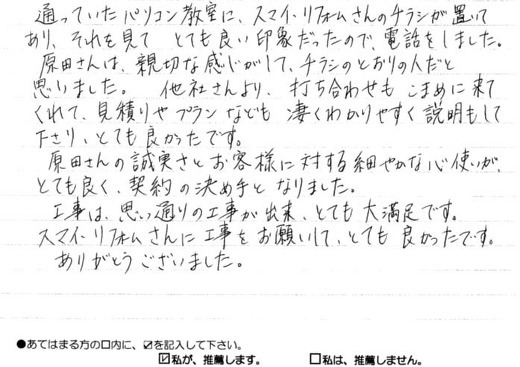 通っていたパソコン教室に、スマイ・リフォームさんのチラシが置いて
あり、それを見て とても良い印象だったので、電話をしました。
原田さんは、親切な感じがして、チラシのとおりの人だと
思いました。 他社さんより、打ち合わせも こまめに来て
くれて、見積りやプランなども 凄くわかりやすく説明もして
下さり、とても良かったです。
原田さんの誠実さとお客様に対する細やかな心使いが、
とても良く、契約の決め手となりました。
工事は、思った通りの工事が出来、とても大満足です。
スマイ・リフォームさんに工事をお願いして、とても良かったです。
ありがとうございました。
●あてはまる方の口内に、☑を記入して下さい。
☑私が、推薦します。 □私は、推薦しません。